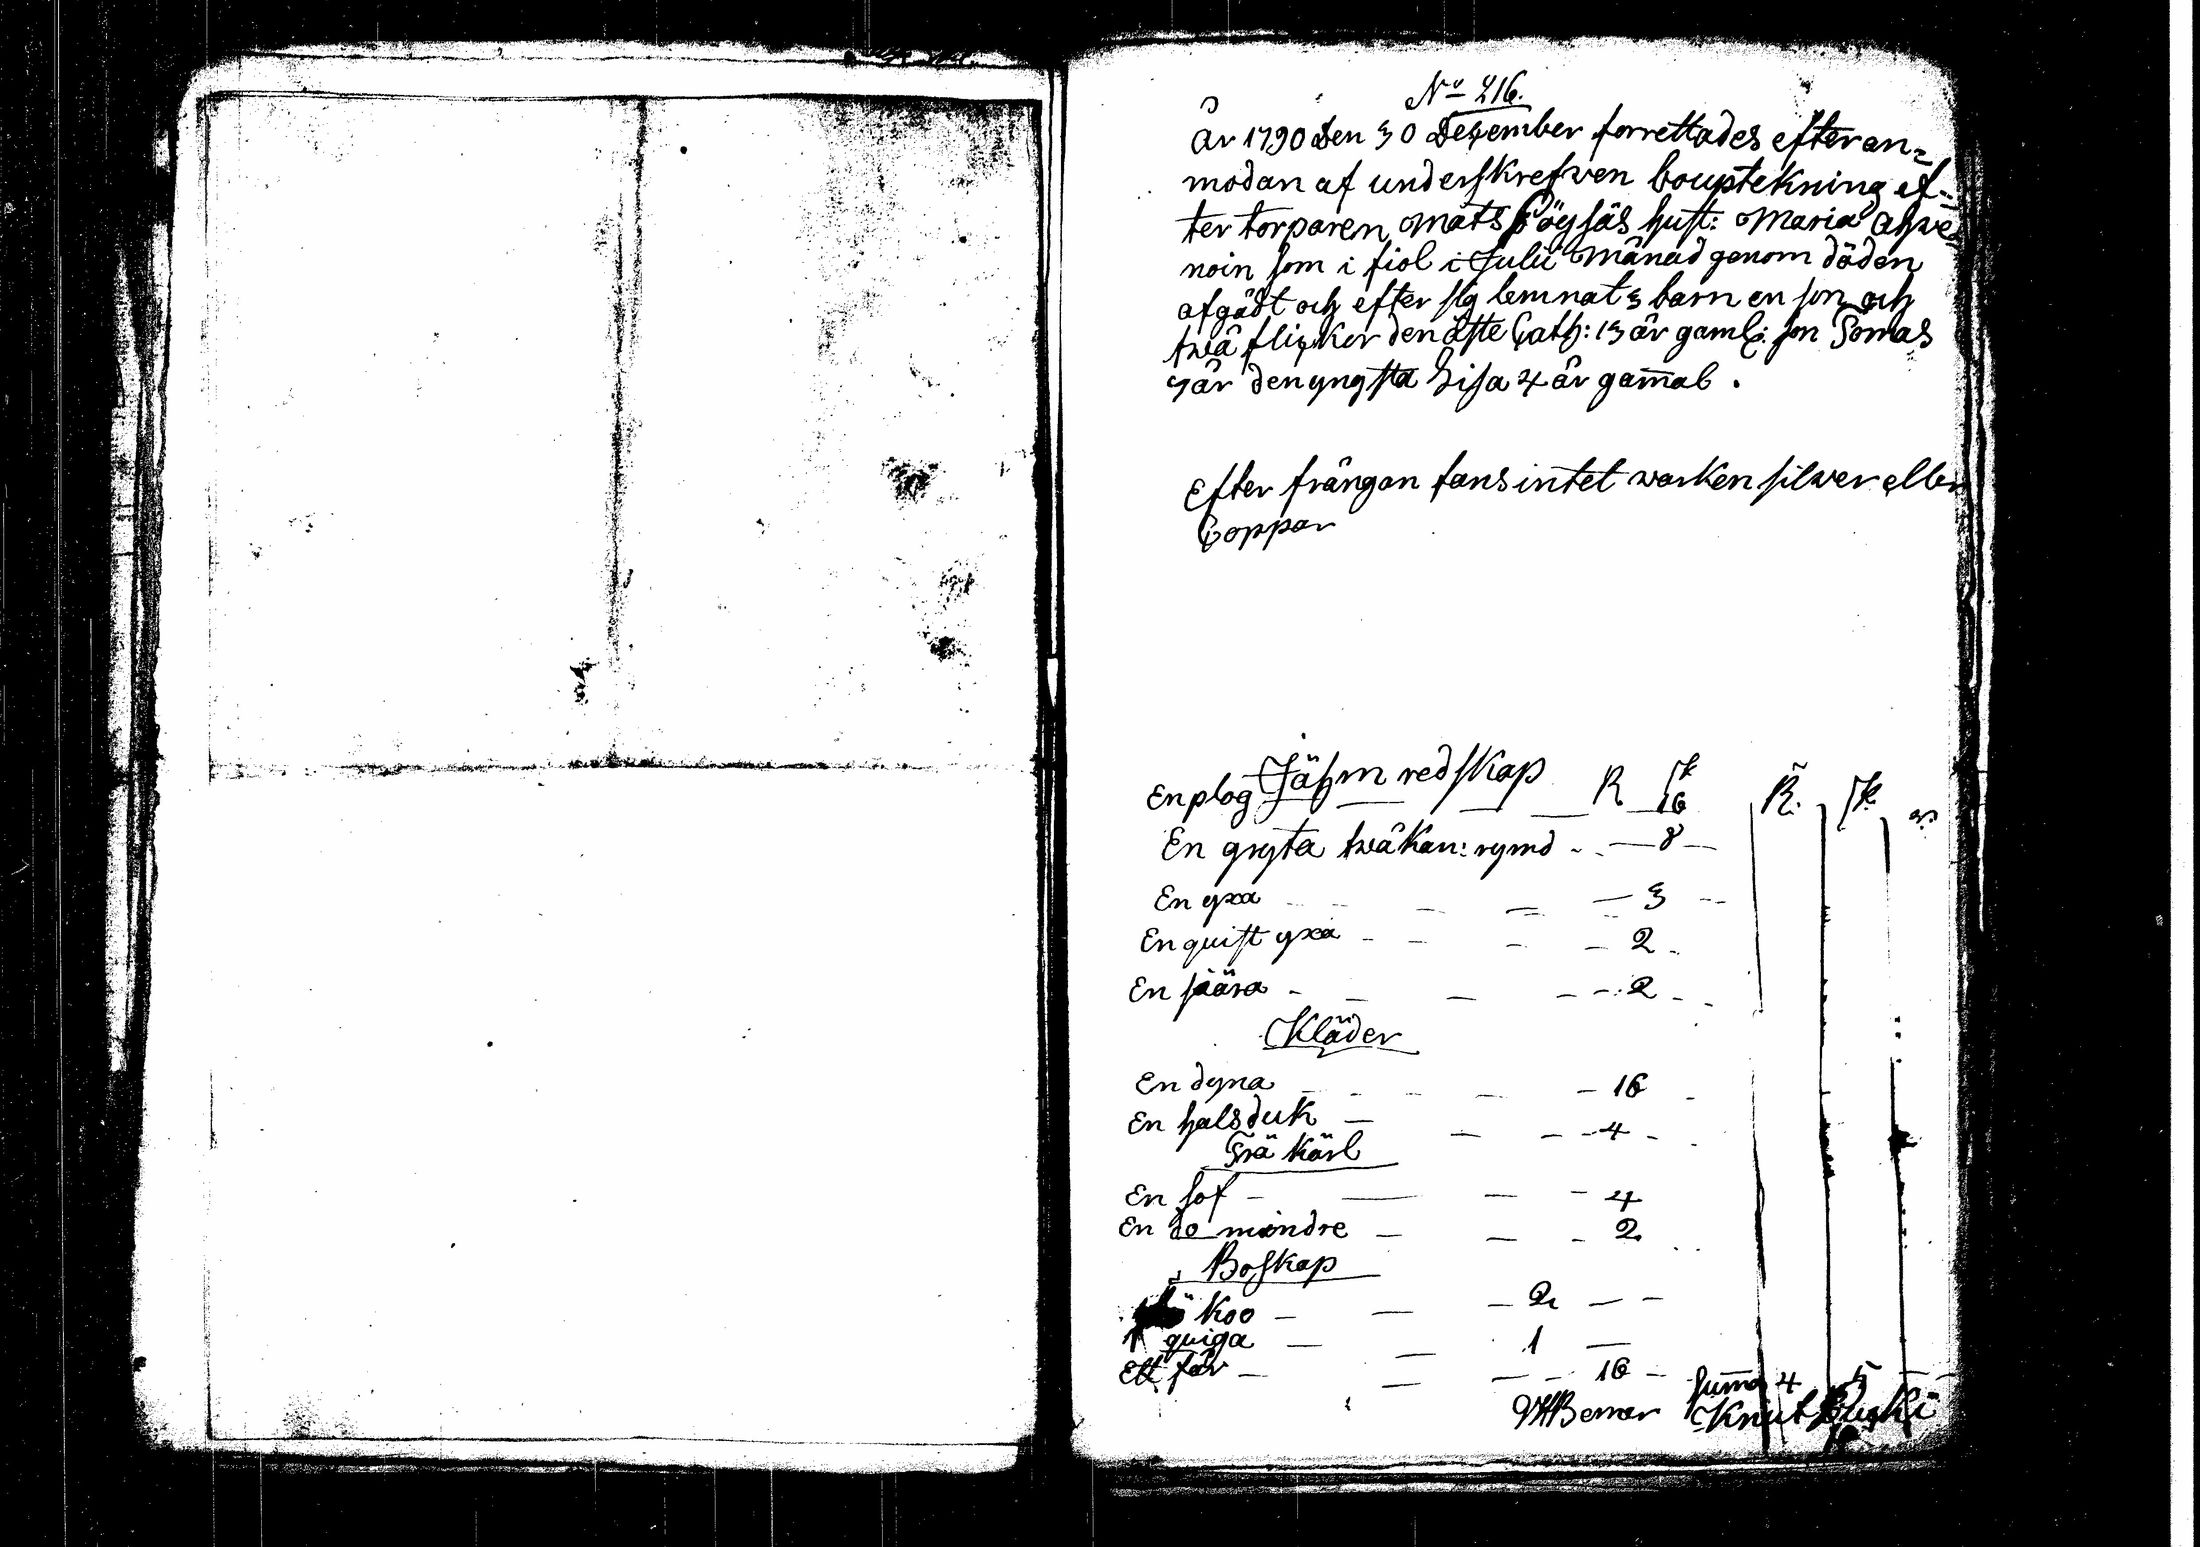 No 216.
År 1790 den 30 Dezember forrettades efter an=
modan af underskrefven bouptekning ef=
ter torparen Mats Pöysäs hust: Maria Ahve=
noin som i fiol i Julii Månad genom döden
afgådt och efter sig lemnat 3 barn en son och
två flicker den älste Cath: 13 år gaml: son Tomas
7 år den yngsta Lisa 4 år gamal.
Efter frångan fans intet warken silwer eller
Coppar
Jähm redskap R sk R. sk
En plog 16
En gryta två kan: rymd 8
En yxa 3
En quist yxa 2
En skära 2
Kläder
En dyna 16
En halsduk 4
Trä kärl
En sof 4
En do mindre 2
Boskap
koo 2
1 quiga 1
Ett får 16
Suma 4 5
Knut